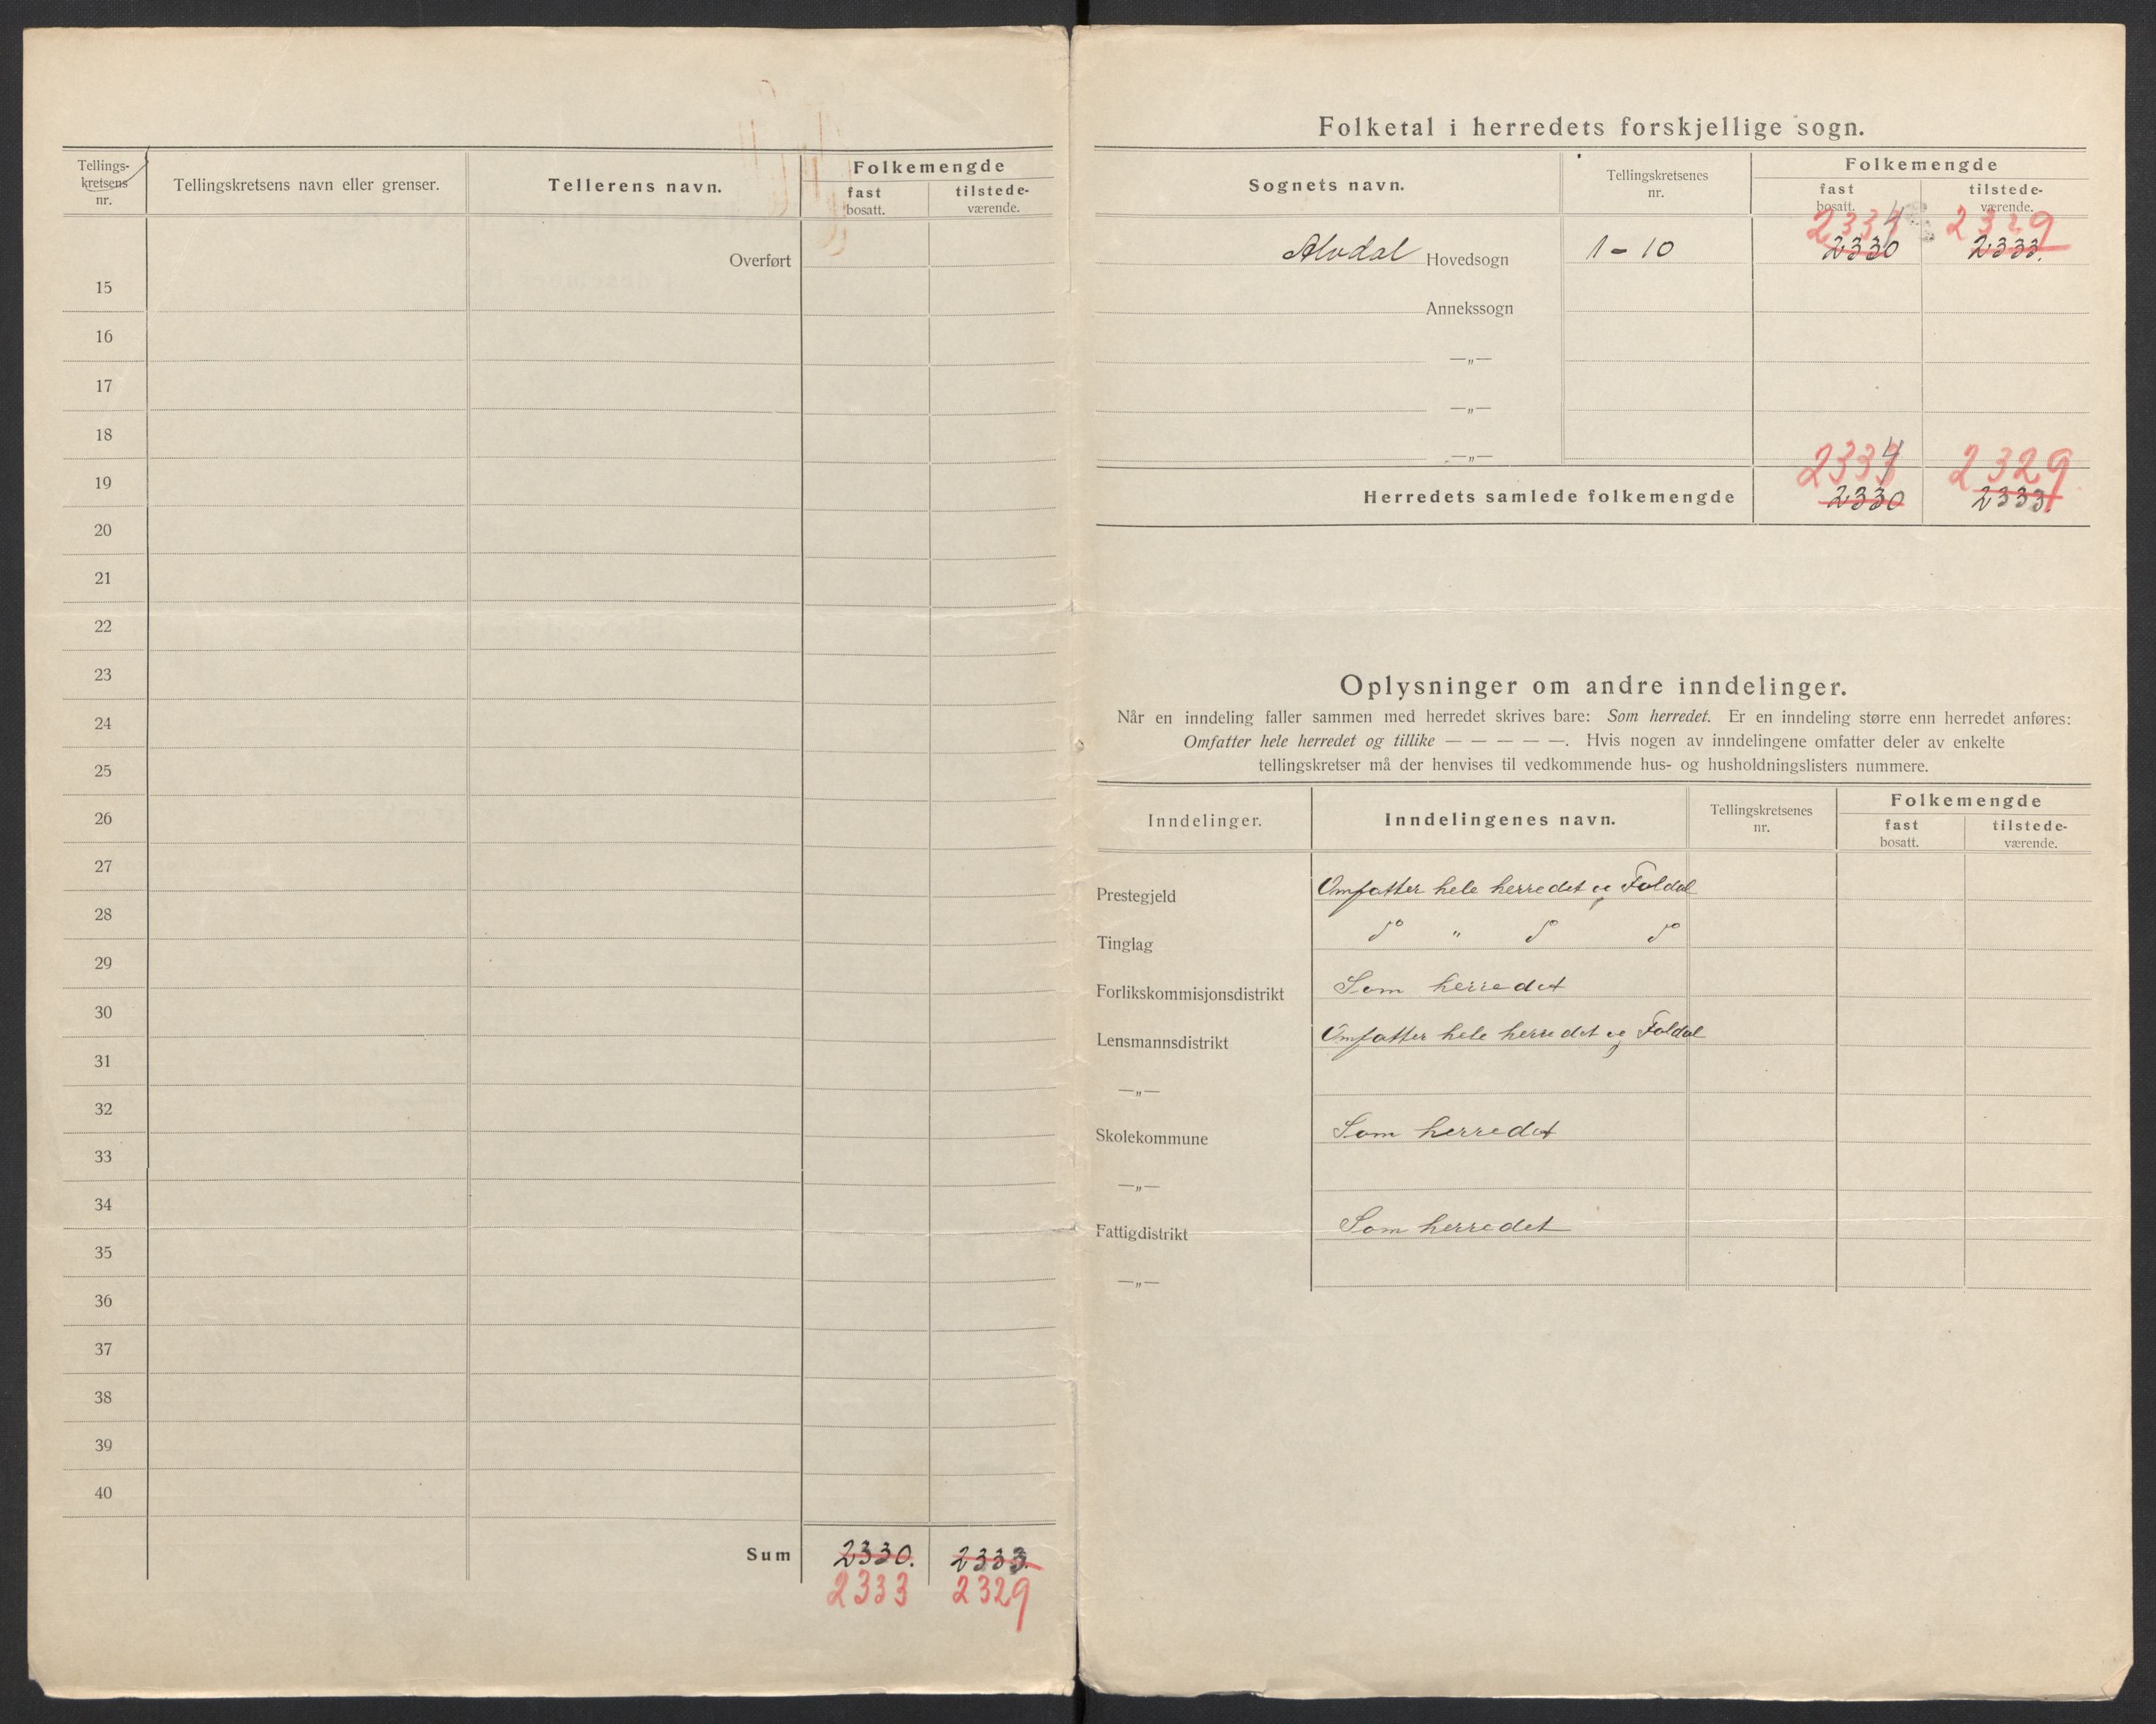 Tellings-
kretsens
nr.
Tellingskretsens navn eller grenser.
Tellerens navn.
Folkemengde
fast
bosatt.
tilstede-
værende.
Overført
15
16
17
18
19
20
21
22
23
24
25
26
27
28
29
30
31
32
33
34
35
36
37
38
39
40
Sum 2330. 2333.
2333 2329
Folketal i herredets forskjellige sogn.
Sognets navn.
Tellingskretsenes
nr.
Folkemengde
fast
bosatt.
tilstede-
værende.
2334 2329
Alvdal Hovedsogn 1-10 2330 2333.
Annekssogn
—„—
—„—
—„—
2334 2329
Herredets samlede folkemengde 2330 2333.
Oplysninger om andre inndelinger.
Når en inndeling faller sammen med herredet skrives bare: Som herredet. Er en inndeling større enn herredet anføres:
Omfatter hele herredet og tillike — — — — —. Hvis nogen av inndelingene omfatter deler av enkelte
tellingskretser må der henvises til vedkommende hus- og husholdningslisters nummere.
Inndelinger.
Inndelingenes navn.
Tellingskretsenes
nr.
Folkemengde
fast
bosatt.
tilstede-
værende.
Prestegjeld Omfatter hele herredet og Foldal
Tinglag do " do do
Forlikskommisjonsdistrikt Som herredet
Lensmannsdistrikt Omfatter hele herredet og Foldal
—„—
Skolekommune Som herredet
—„—
Fattigdistrikt Som herredet
—„—